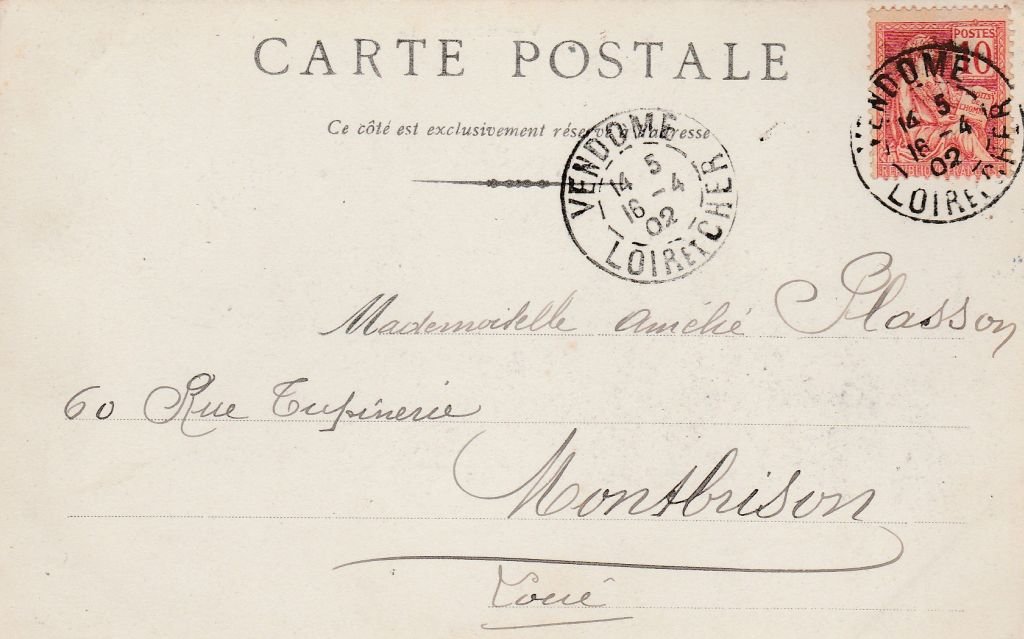 CARTE POSTALE
Ce côté est exclusivement réservé à l'adresse
POSTES
10
RÉPUBLIQUE FRANÇAISE
VENDOME
5
14
16 - 4
02
LOIR ET CHER
VENDOME
5
14
16 - 4
02
LOIR ET CHER
Mademoiselle Plasson
60 Rue Tupinerie
Montbrison